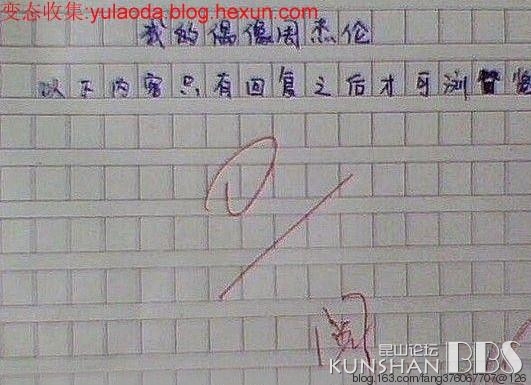 变态收集:yulaoda.blog.hexun.com
我的偶像周杰伦
以下内容只有回复之后才可浏览
阅
昆山论坛
KUNSHAN BBS
blog.163.com/fang376067707@126